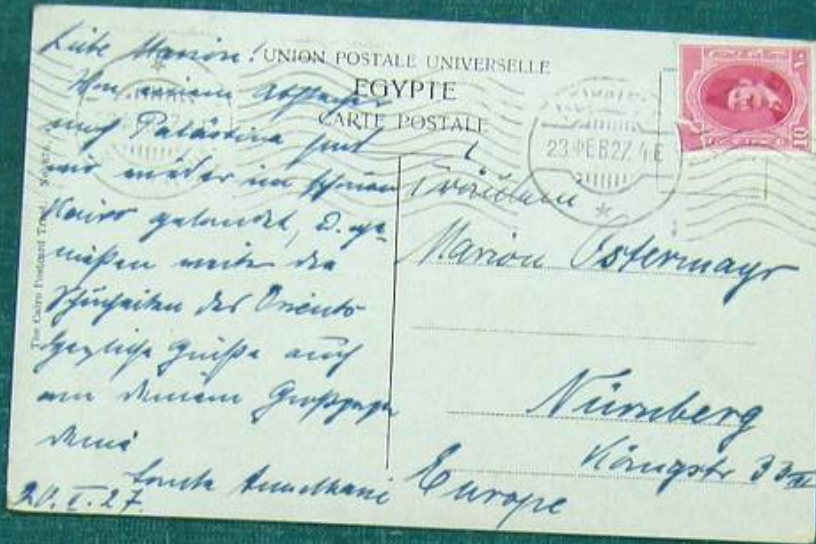 UNION POSTALE UNIVERSELLE
EGYPTE
CARTE POSTALE
The Cairo Postcard Trust,
23 ΦEB 27. 4 E
10
Liebe Marion!
Von einem Abstecher
nach Palästina sind
wir wieder im schönen
Kairo gelandet, u. ge-
nießen weiter die
Schönheiten des Orients
Herzliche Grüße auch
an deinem
deine
Tante
27.
Fräulein
Marion Ostermayr
Nürnberg
Königstr 33 III
Europe